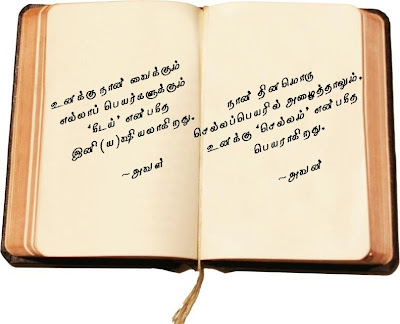 உனக்கு நான் வைக்கும்
எல்லாப் பெயர்களுக்கும்
‘டேய்’ என்பதே
இனி(ய)ஷியலாகிறது.
~அவள்
நான் தினமொரு
செல்லப்பெயரில் அழைத்தாலும்.
உனக்கு ‘செல்லம்’ என்பதே
பெயராகிறது.
~அவன்